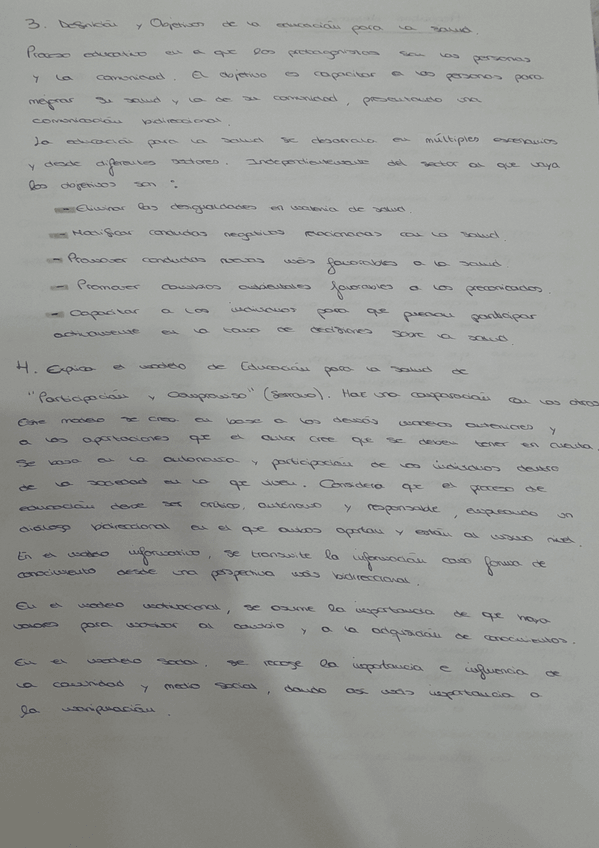 3. Definición y Objetivos de la educación para la salud.
Proceso educativo en el que los protagonistas son las personas
y la comunidad. El objetivo es capacitar a las personas para
mejorar su salud y la de su comunidad, presentando una
comunicación bidireccional.
La educación para la salud se desarrolla en múltiples escenarios
y desde diferentes sectores. Independientemente del sector al que vaya
los objetivos son:
- Eliminar las desigualdades en materia de salud.
- Modificar conductas negativas relacionadas con la salud.
- Promover conductas nuevas más favorables a la salud
- Promover cambios ambientales favorables a los preconizados.
- Capacitar a los individuos para que puedan participar
activamente en la toma de decisiones sobre la salud.
4. Explica el modelo de Educación para la salud de
"Participación y Compromiso" (Serrano). Haz una comparación con los otros
Este modelo se crea en base a los demás modelos anteriores y
a las aportaciones que el autor cree que se deben tener en cuenta.
Se basa en la autonomía y participación de los individuos dentro
de la sociedad en la que viven. Considera que el proceso de
educación debe ser crítico, autónomo y responsable, empleando un
diálogo bidireccional en el que ambos aportan y están al mismo nivel.
En el modelo informativo, se transmite la información como forma de
conocimiento desde una perspectiva más bidireccional.
En el modelo motivacional, se asume la importancia de que haya
para motivar al cambio y a la adquisición de conocimientos.
En el modelo social, se recoge la importancia e influencia de
la comunidad y medio social, dando así más importancia a
la manipulación.